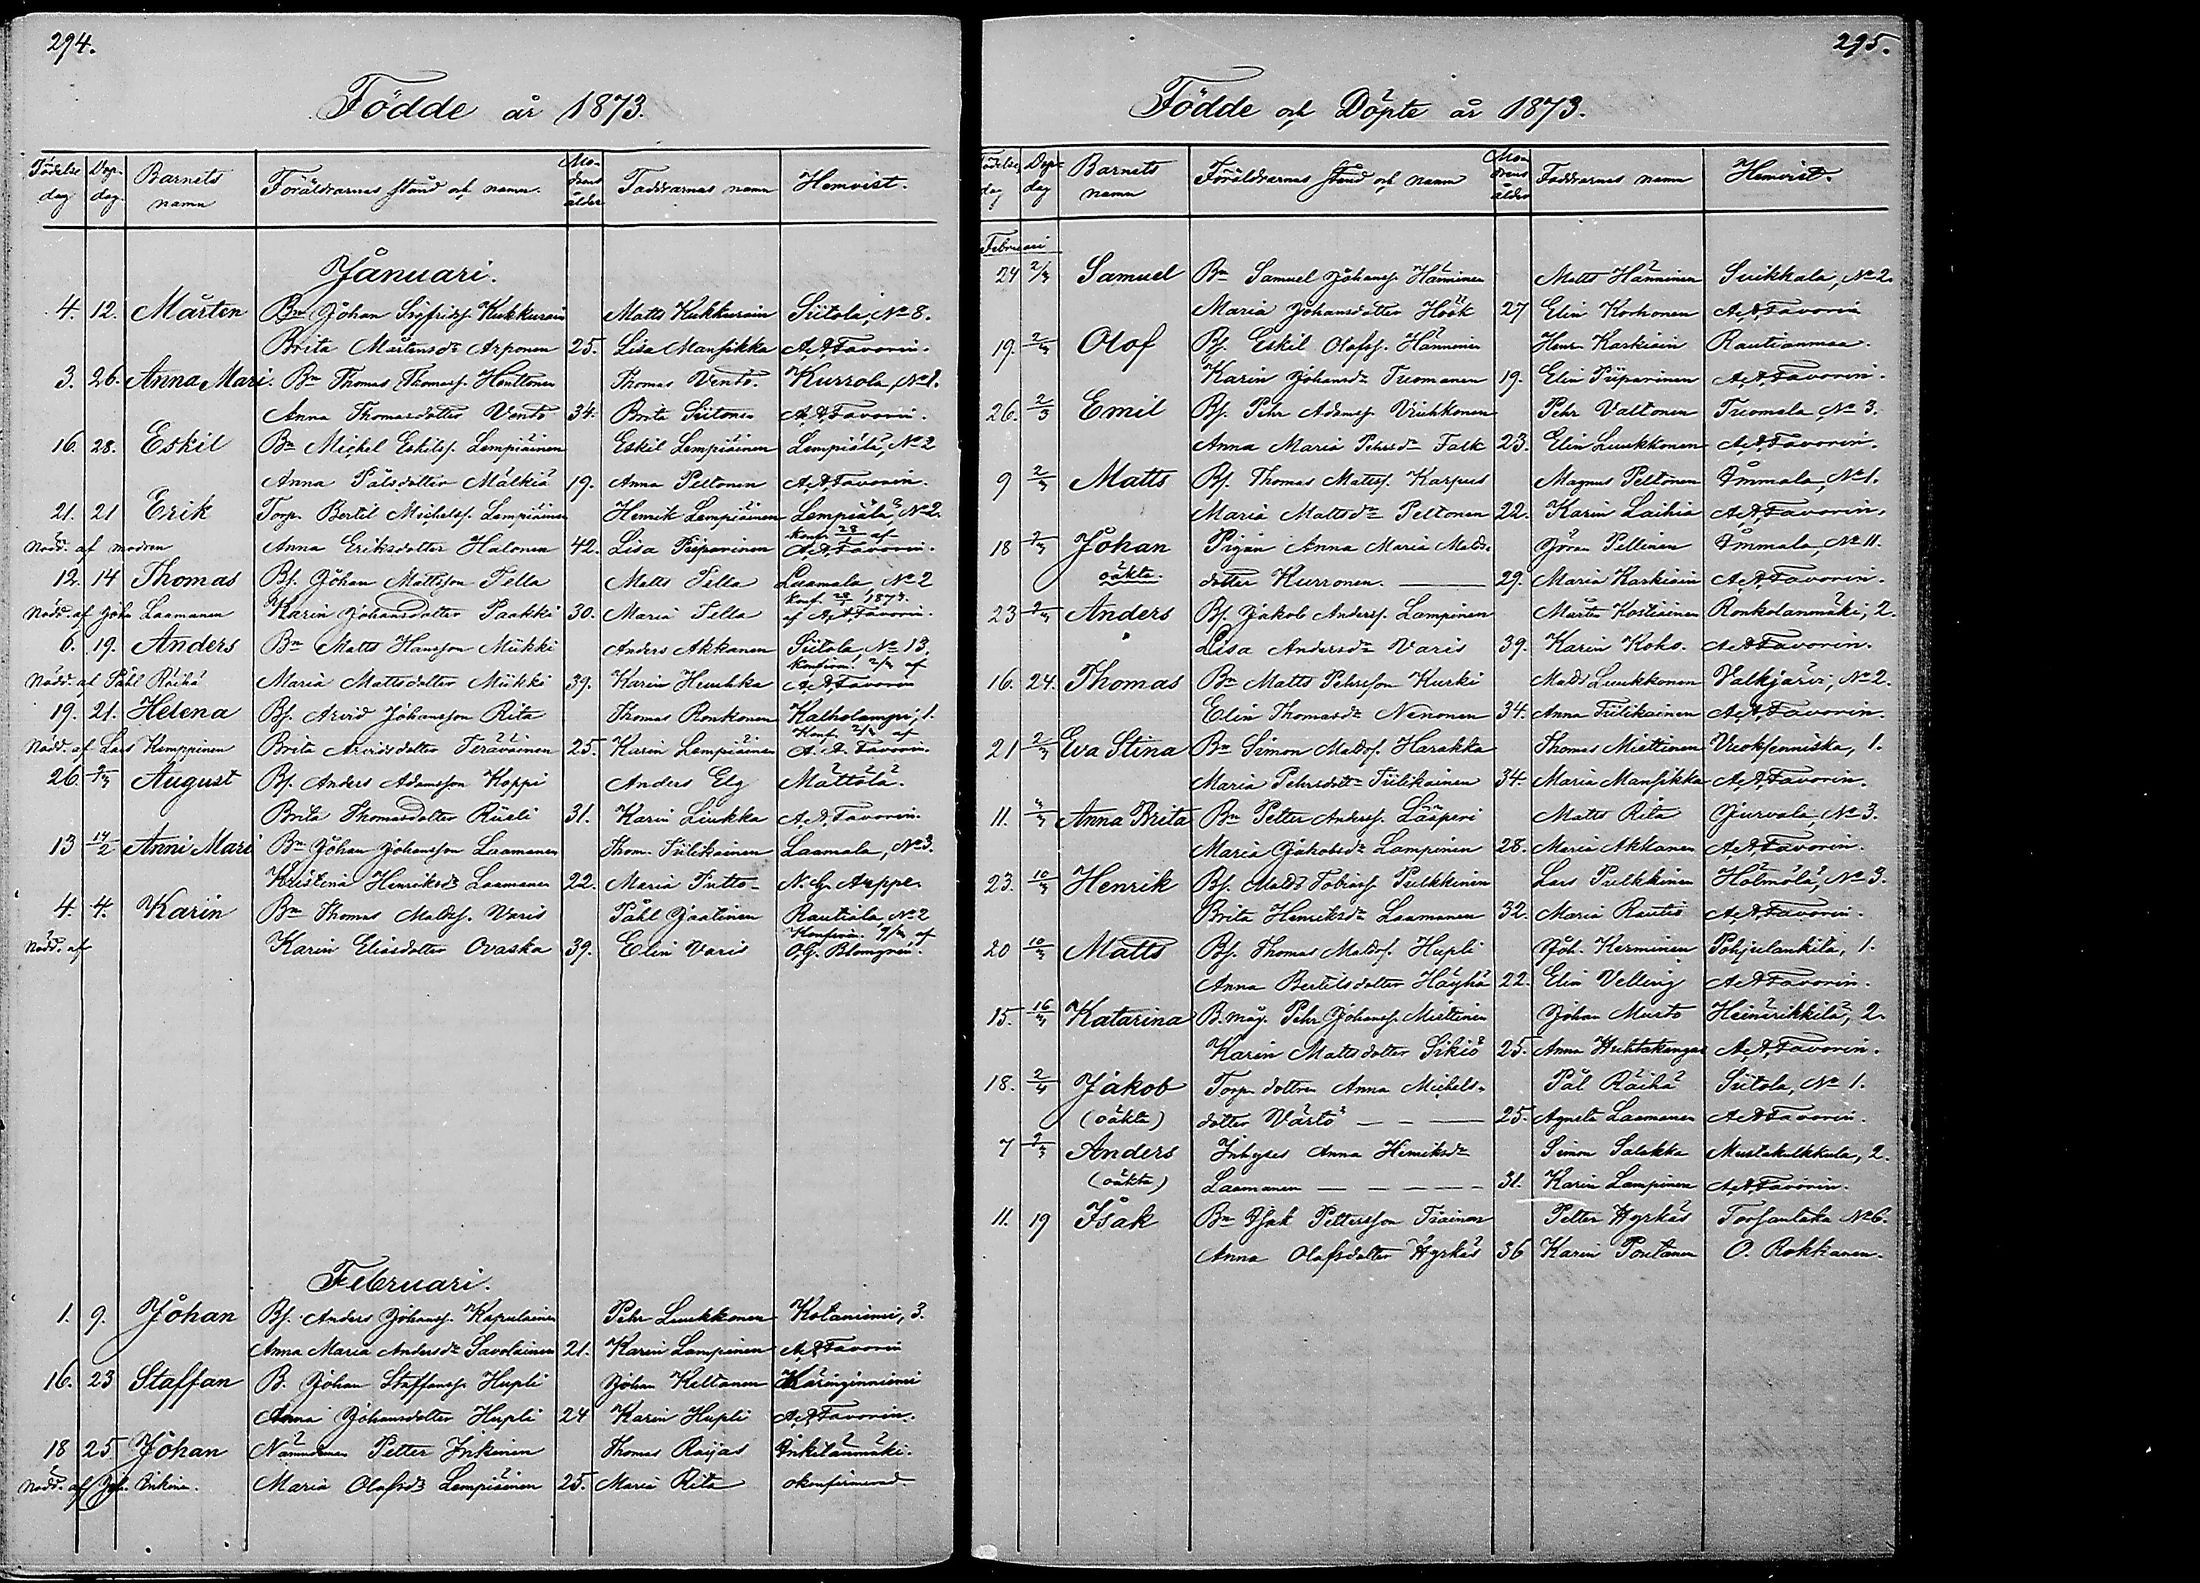 294.
Födde år 1873.
Födelse dag Dop- dag. Barnets namn Föräldrarnas stånd och namn. Mo- drens ålder Faddrarnas namn Hemvist.
Januari.
4. 12. Mårten Bn Johan Sigfridss. Kukkurain Matts Kukkurain Siitola, No 8.
Brita Mårtensdr Arponen 25. Lisa Mansikka A. A. Favorin.
3. 26. Anna Mari. Bn Thomas Thomass. Henttonen Thomas Vento. Kurrola, No 1.
Anna Thomasdotter Vento 34. Brita Siitonen A. A. Favorin.
16. 28. Eskil Bn Michel Eskilss. Lempiäinen Eskil Lempiäinen Lempiälä, No 2
Anna Pålsdotter Mälkiä 19. Anna Peltonen A. A. Favorin.
21. 21 Erik Torp. Bertil Michelss. Lempiäinen Henrik Lempiäinen Lempiälä, No 2.
Nödd. af modren Anna Eriksdotter Halonen 42. Lisa Piiparinen Konf. af A. A. Favorin.
12. 14 Thomas Bs. Johan Mattsson Tella Matts Tella Laamala, No 2
Nödd. af Joh. Laamanen Karin Johansdotter Paakki 30. Maria Tella Konf. 1873. af A. A. Favorin.
6. 19. Anders Bn Matts Hansson Miikki Anders Akkanen Siitola No 13.
Nödd. af Påhl Räihä Maria Mattsdotter Miikki 39. Karin Huuhka Konfirm. 2/2 af A. A. Favorin
19. 21. Helena Bs. Arvid Johansson Rita Thomas Ronkonen Kalholampi, 1.
Nödd. af Lars Kemppinen Brita Arvidsdotter Teräväinen 25. Karin Lempiäinen Konf. 2/2 af A. A. Favorin.
26. 2/3 August Bs. Anders Adamsson Koppi Anders Elg Mättölä.
Brita Thomasdotter Rüsli 31. Karin Liukka A. A. Favorin.
13 14/2 Anni Mari Bn Johan Johansson Laamanen Thom. Tiilikainen Laamala, No 3.
Kristina Henriksdr Laamanen 22. Maria Putto N. G. Arppe.
4. 4. Karin Bn Thomas Matdss. Varis Påhl Jaatinen Rautiala No 2
Nödd. af Karin Eliasdotter Ovaska 39. Elin Varis Konfirm. 9/2 af O. G. Blomgren.
Februari.
1. 9. Johan Bs. Anders Johanss. Kapulainen Pehr Luukkonen Kotaniemi, 3.
Anna Maria Andersdr Savolainen 21. Karin Lampinen A. A. Favorin
16. 23 Staffan B. Johan Staffanss. Hupli Johan Keltanen Käringinniemi
Anna Johansdotter Hupli 24 Karin Hupli A. A. Favorin.
18 25 Johan Nämndeman Petter Inkinen Thomas Raijas Inkilänmäki.
Nödd. af Joh. Inkinen. Maria Olofsdr Lempiäinen 25. Maria Rita okonfirmerad.
295.
Födde och Döpte år 1873.
Födelse dag Dop- dag Barnets namn Föräldrarnas stånd och namn Mo- drens ålder Faddrarnas namn Hemvist.
Februari
24 2/3 Samuel Bn Samuel Johanss. Hänninen Matts Hänninen Suikkala, No 2.
Maria Johansdotter Höök 27 Elin Korhonen A. A. Favorin
19. 2/3 Olof Bs. Eskil Olofss. Hänninen Henr. Karkiain Rautianmaa.
Karin Johansdr Tuomanen 19. Elin Piiparinen A. A. Favorin.
26. 2/3 Emil Bs. Pehr Adamss. Vuihkonen Pehr Valtonen Tuomala No 3.
Anna Maria Pehrsdr Falk 23. Elin Luukkonen A. A. Favorin.
9 2/3 Matts Bs. Thomas Matss. Karpus Magnus Peltonen Immala, No 1.
Maria Mattsdr Peltonen 22. Karin Laihia A. A. Favorin.
18 2/3 Johan Pigan Anna Maria Matds- Göran Pellinen Immala, No 11.
oäkta. dotter Kurronen. 29. Maria Karkiain A. A. Favorin.
23 2/3 Anders Bs. Jakob Anderss. Lampinen Mårten Kostiainen Ronkolanmäki, 2.
Lisa Andersdr Varis 39. Karin Koho. A. A. Favorin.
16. 24. Thomas Bn Matts Pehrsson Kurki Matds Luukkonen Valkjärvi, No 2.
Elin Thomasdr Nenonen 34. Anna Tiilikainen A. A. Favorin.
21 2/3 Eva Stina Bn Simon Matdss. Harakka Thomas Miettinen Vuoksenniska, 1.
Maria Pehrsdotr Tiilikainen 34. Maria Mansikka A. A. Favorin.
11. 4/3 Anna Brita Bn Petter Anderss. Lääperi Matts Rita Gjurvala, No 3.
Maria Jakobsdr Lampinen 28. Maria Akkanen A. A. Favorin.
23. 10/3 Henrik Bs. Matds Tobiass. Pulkkinen Lars Pulkkinen Hölmölä, No 3.
Brita Henriksdr Laamanen 32. Maria Rautio A. A. Favorin.
20 10/3 Matts Bs. Thomas Matdss. Hupli Joh. Kerminen Pohjulankila, 1.
Anna Bertelsdotter Häyhä 22. Elin Velling A. A. Favorin.
15. 16/3 Katarina B. måg. Pehr Johanss. Miettinen Johan Murto Heinirikkilä, 2.
Karin Mattsdotter Sikiö 25. Anna Huhtakangas A. A. Favorin.
18. 2/4 Jakob Torp. dottren Anna Michels- Pål Räihä Siitola, No 1.
(oäkta) dotter Värtö 25. Agneta Laamanen A. A. Favorin.
7 2/3 Anders Inhyses Anna Henriksdr Simon Salakka Mustakulkkula, 2.
(oäkta) Laamanen 31. Karin Lampinen A. A. Favorin.
11. 19 Isak Bn Isak Pettersson Tiainen Petter Hyrkäs Torsantaka No 6.
Anna Olofsdotter Hyrkäs 36 Karin Pontanen O. Rokkanen.